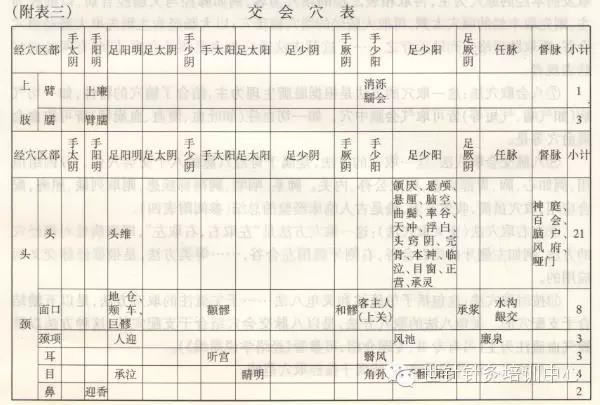 (附表三) 交会穴表
经穴区部 手太阴 手阳明 足阳明 足太阴 手少阴 手太阳 足太阳 足少阴 手厥阴 手少阳 足少阳 足厥阴 任脉 督脉 小计
上肢 臂 土廉 消泺 臑会 1
臑 臂臑 3
经穴区部 手太阴 手阳明 足阳明 足太阴 手少阴 手太阳 足太阳 足少阴 手厥阴 手少阳 足少阳 足厥阴 任脉 督脉 小计
头 头 头维
颔厌、悬颅、
悬厘、脑空、
曲鬓、率谷、
天冲、浮白、
头窍阴、完
骨、本神、临
泣、目窗、正
营、承灵
神庭、
百会、
脑户、
风府、
哑门
21
颈 面口 地仓、
颊车、
巨髎
颧髎 和髎 客主人
(上关)
承浆 水沟
龈交
8
颈项 人迎 风池 廉泉 3
耳 听宫 翳风 3
目 承泣 睛明 角孙 子髎 4
鼻 迎香 2
世针针灸培训中心